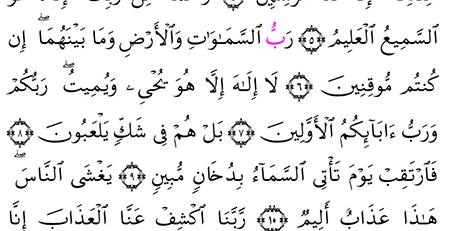 ٱلسَّمِيعُ ٱلْعَلِيمُ ﴿٦﴾ رَبُّ ٱلسَّمَـٰوَٰتِ وَٱلْأَرْضِ وَمَا بَيْنَهُمَآ ۖ إِن
كُنتُم مُّوقِنِينَ ﴿٦﴾ لَآ إِلَـٰهَ إِلَّا هُوَ يُحْىِۦ وَيُمِيتُ ۖ رَبُّكُمْ
وَرَبُّ ءَابَآئِكُمُ ٱلْأَوَّلِينَ ﴿٧﴾ بَلْ هُمْ فِى شَكٍّ يَلْعَبُونَ ﴿٨﴾
فَٱرْتَقِبْ يَوْمَ تَأْتِى ٱلسَّمَآءُ بِدُخَانٍ مُّبِينٍ ﴿٩﴾ يَغْشَى ٱلنَّاسَ ۖ
هَـٰذَا عَذَابٌ أَلِيمٌ ﴿١٠﴾ رَّبَّنَا ٱكْشِفْ عَنَّا ٱلْعَذَابَ إِنَّا